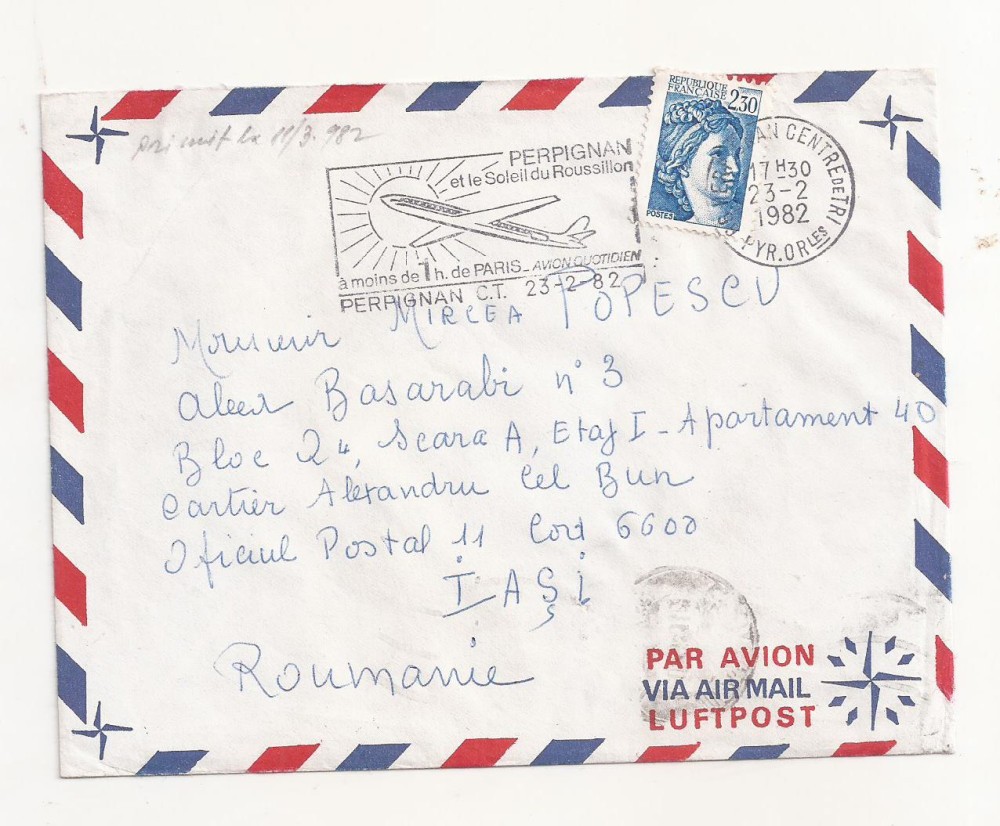 REPUBLIQUE
FRANÇAISE 2,30
POSTES
la 11/3.982
PERPIGNAN
et le Soleil du Roussillon
à moins de 1h. de PARIS_AVION QUOTIDIEN
PERPIGNAN C.T. 23-2-82
AN CENTRE DE TRI
17H30
23-2
1982
PYR.ORLES
Monsieur MIRCEA POPESCU
Basarabi n° 3
Bloc 24, Scara A, Etaj I - Apartament 40
Cartier Alexandru Cel Bun
Oficiul Postal 11 Cod 6600
IAŞI
Roumanie
PAR AVION
VIA AIR MAIL
LUFTPOST